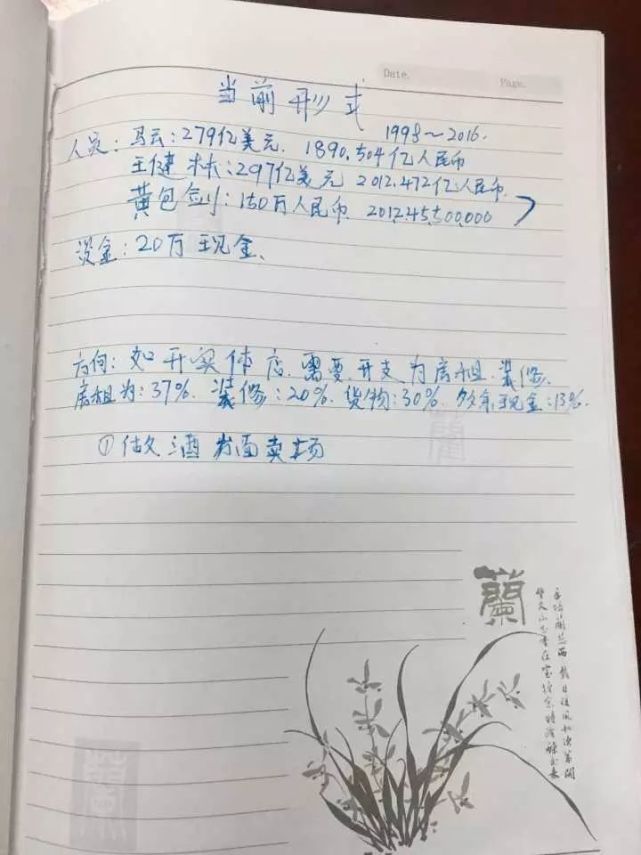 Date.
Page.
当前形式
1998～2016.
人员：马云：279亿美元. 1890.504亿人民币
王健林：297亿美元 2012.472亿人民币.
黄包剑：150万人民币 201245500000
资金：20万现金.
方向：如开实体店.需要开支为房租.装修.
房租为：37%. 装修：20%. 货物：30%. 多余现金：13%.
①做酒出面卖场
蘭